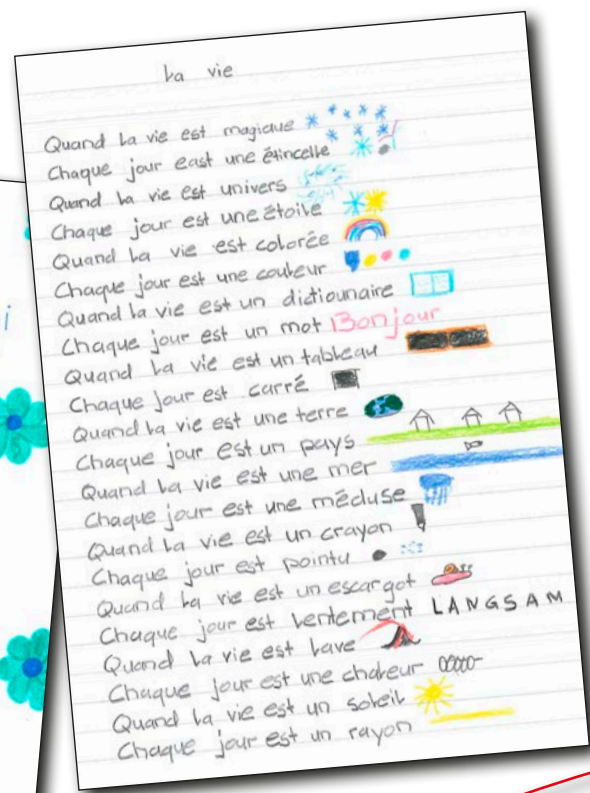 La vie
Quand la vie est magique
Chaque jour east une étincelle
Quand la vie est univers
Chaque jour est une étoile
Quand la vie est colorée
Chaque jour est une couleur
Quand la vie est un dictiounaire
Chaque jour est un mot Bonjour
Quand la vie est un tableau
Chaque jour est carré
Quand la vie est une terre
Chaque jour est un pays
Quand la vie est une mer
Chaque jour est une méduse
Quand la vie est un crayon
Chaque jour est pointu
Quand la vie est un escargot
Chaque jour est lentement LANGSAM
Quand la vie est lave
Chaque jour est une chaleur
Quand la vie est un soleil
Chaque jour est un rayon